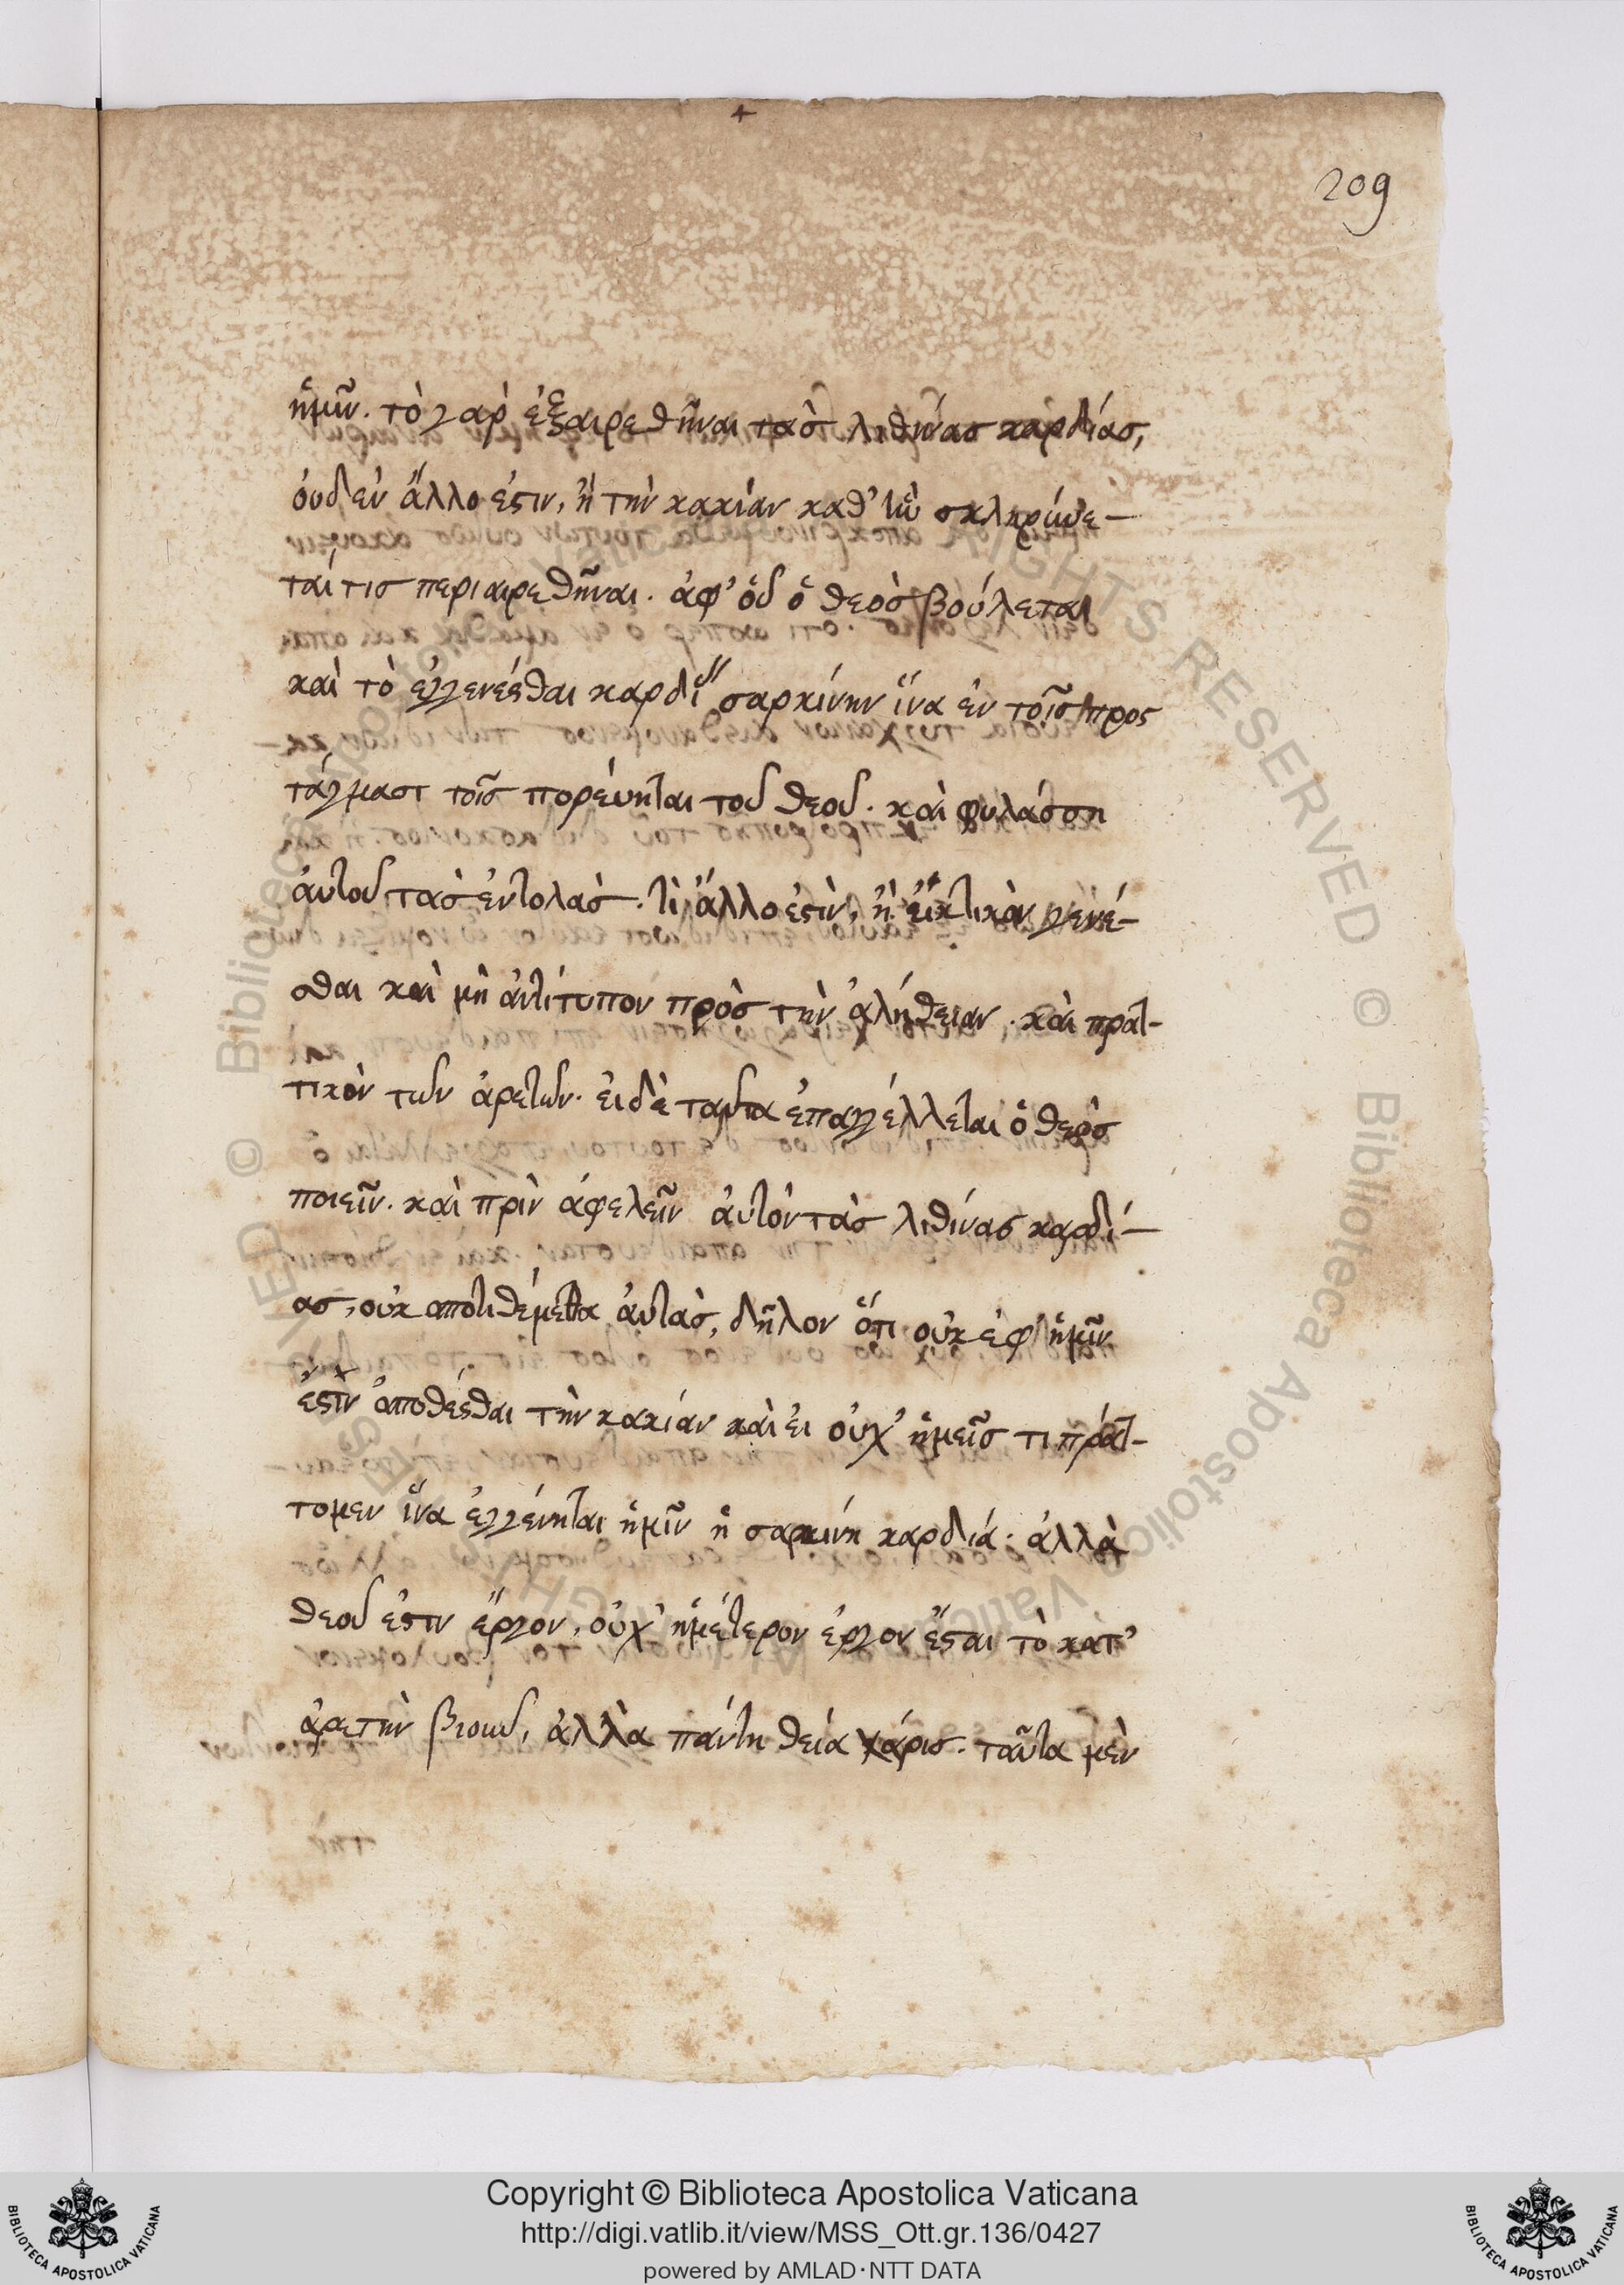 209
ἡμῖν. τὸ γαρ ἐξαιρεθῆναι τὰσ λιθίνασ καρδίασ,
ὀυδὲν ἄλλο ἐστιν, ἢ τὴν κακίαν καθ' ἣν σκληρύνε-
ταί τισ περιαιρεθῆναι. ἀφ' ὁῦ ὁ θεὸσ βούλεται
καὶ τὸ ἐγγενέσθαι καρδί σαρκίνην ἵνα ἐν τοῖσ προσ
τάγμασι τοῖσ πορέυηται τοῦ θεοῦ. καὶ φυλάσση
ἀυτοῦ τὰσ ἐντολὰσ. τὶ ἄλλο ἐστὶν, ἢ εἰκτικὸν γενέ-
σθαι καὶ μὴ ἀντίτυπον πρὸσ τὴν ἀλήθειαν. καὶ πρακ-
τικὸν τῶν ἀρετῶν. ἐι δὲ ταῦτα ἐπαγγέλλεται ὁ θεὸσ
ποιεῖν. καὶ πρὶν ἀφελεῖν ἀυτὸν τὰσ λιθίνασ καρδί-
ασ, οὐκ αποτιθέμεθα ἀυτὰσ, δῆλον ὅτι οὐκ ἐφ' ἡμῖν
ἐστὶν ἀποθέσθαι τὴν κακίαν καὶ ἐι ὀυχ' ἡμεῖσ τι πράτ-
τομεν ἵνα ἐγγένηται ἡμῖν ἡ σαρκινή καρδιά. ἀλλὰ
θεοῦ ἐστιν ἔργον, οὐχ' ἡμέτερον ἔργον ἔσται τὸ κατ'
ἀρετὴν βιοῦν, ἀλλὰ πάντη θεία χάρισ. ταῦτα μὲν
Copyright © Biblioteca Apostolica Vaticana
http://digi.vatlib.it/view/MSS_Ott.gr.136/0427
powered by AMLAD · NTT DATA